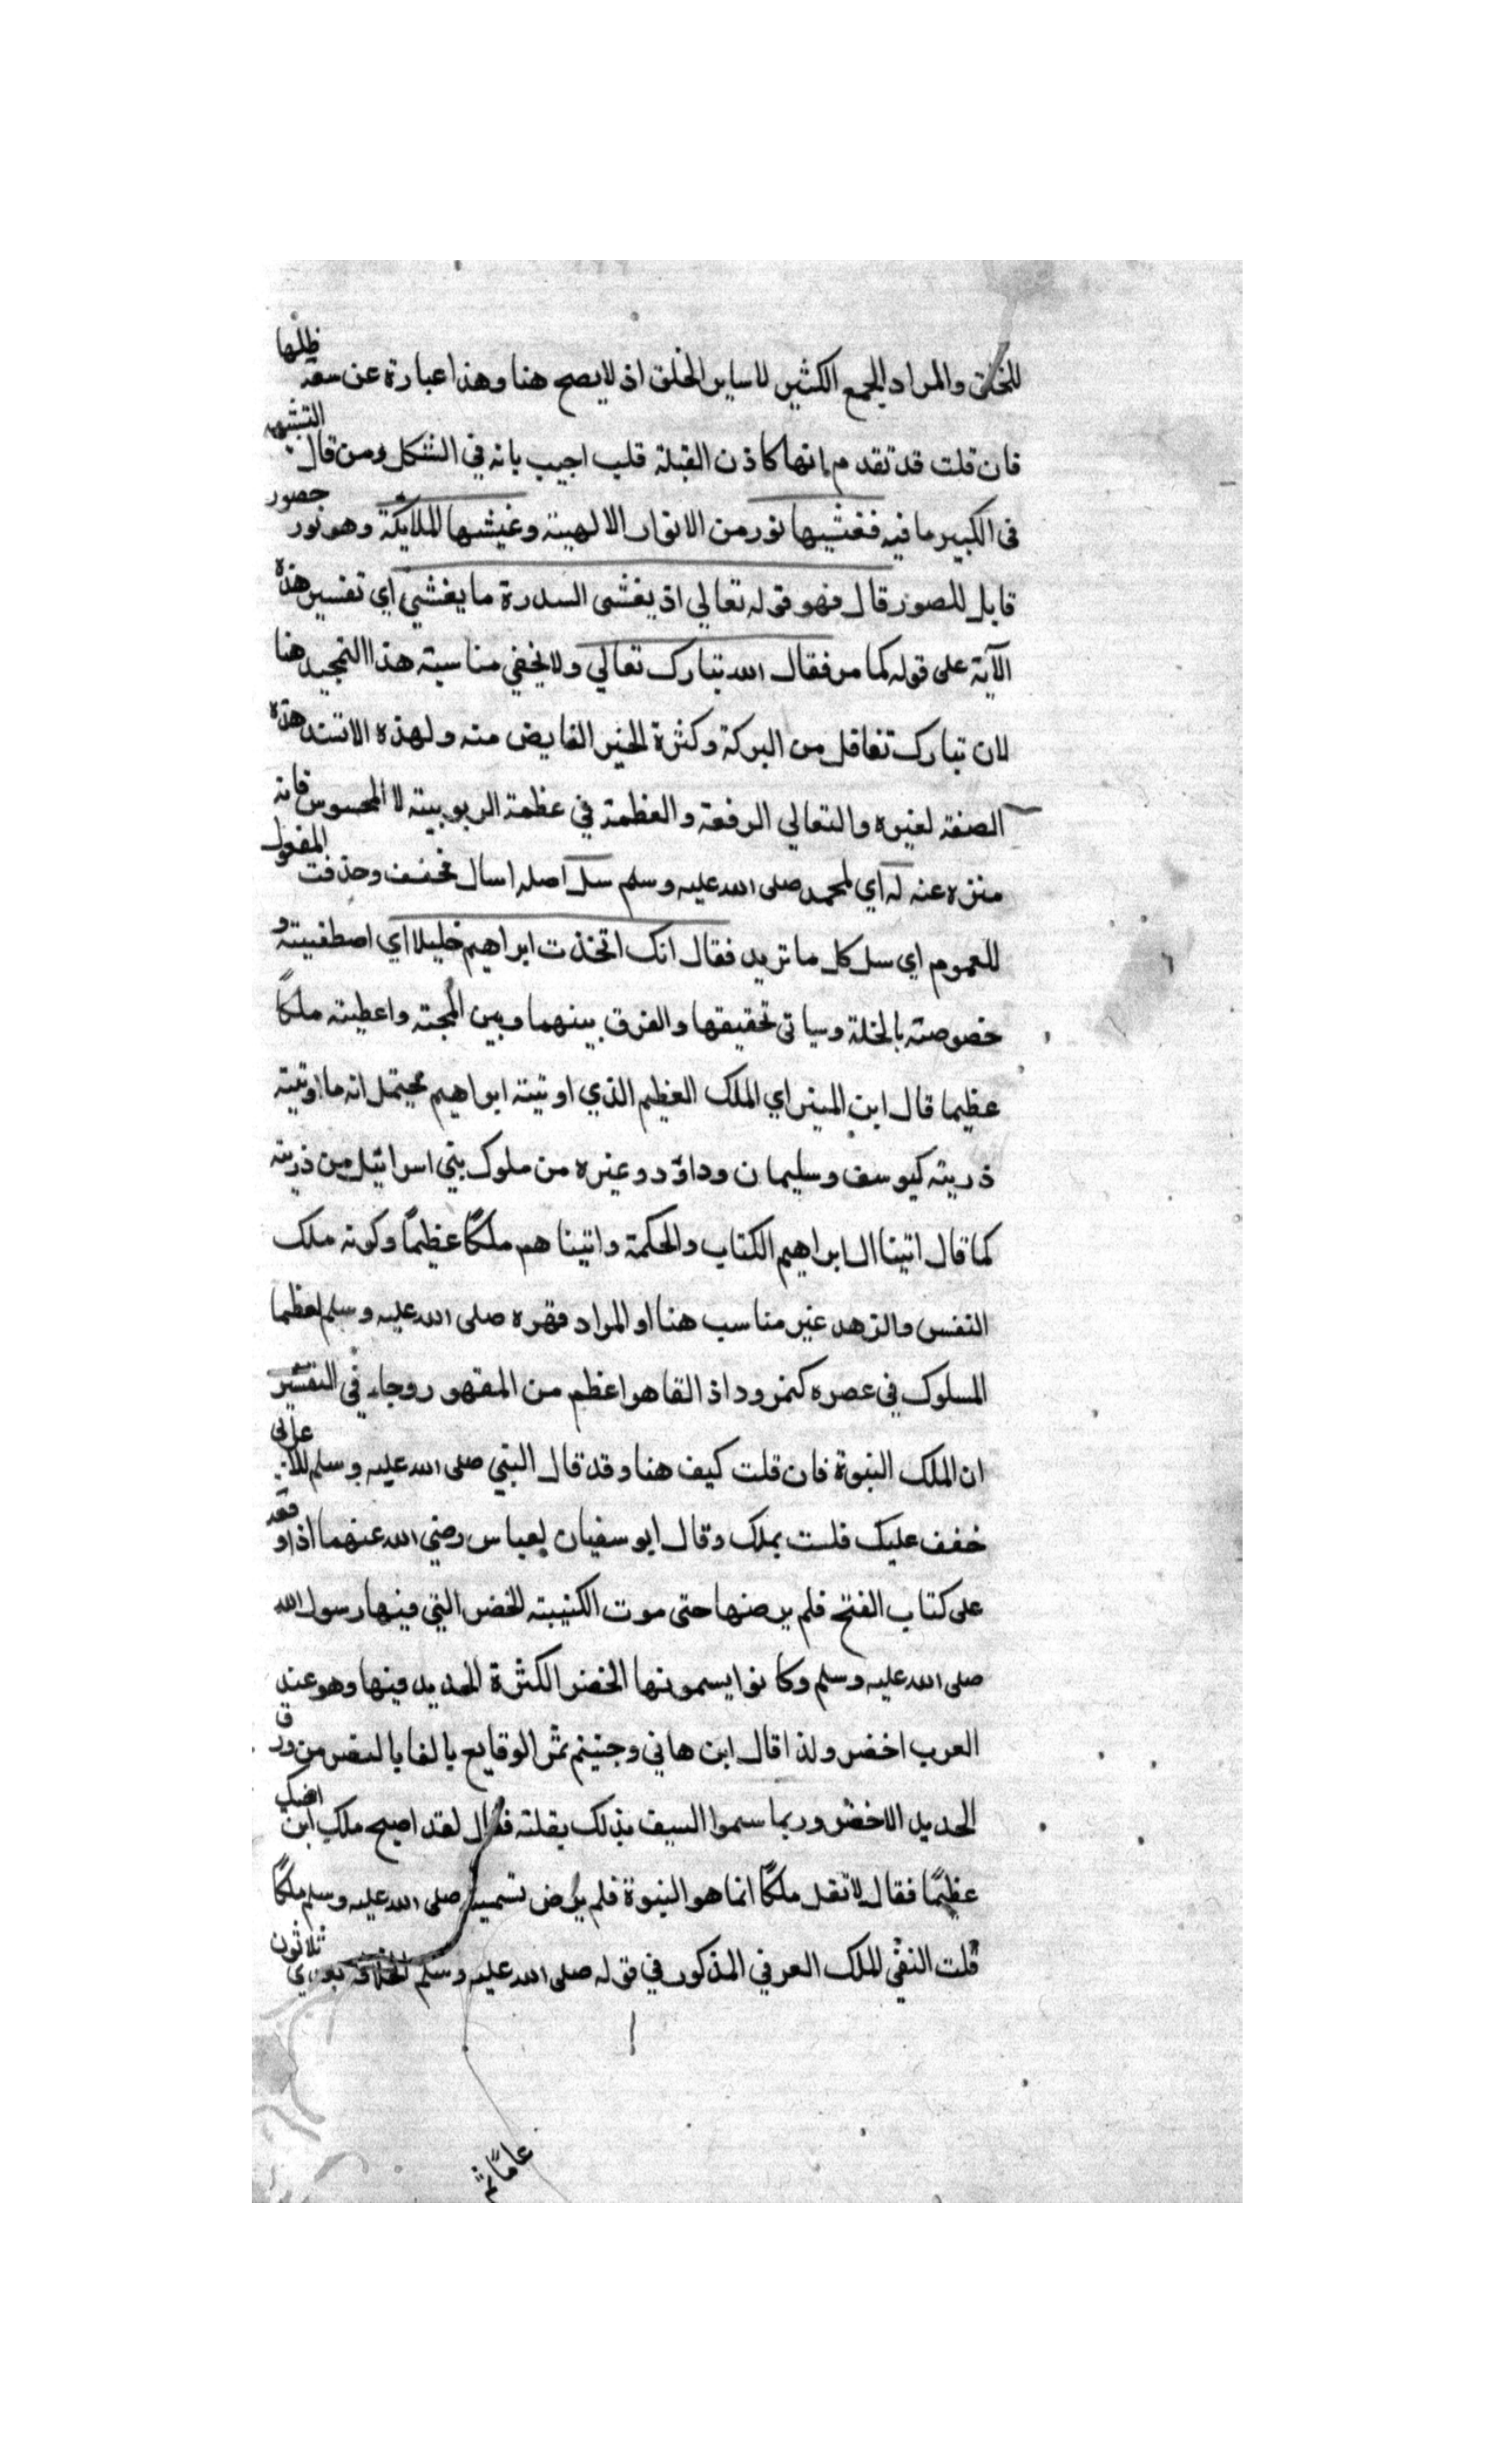 للخلق والمراد الجمع الكثير لا ساير الخلق اذ لا يصح هنا وهذا عبارة عن سعة ظلها
فان قلت قد تقدم انها كاذن القبلة قلت اجيب بانه في الشكل ومن قال التشبيه
في الكبير ما فيه فغشيها نور من الانوار الالهية وغيشها الملايكة وهو نور حصور
قابل للصور قال فهو قوله تعالي اذ يغشى السدرة ما يغشي اي تفسير هذه
الآية على قوله كما مر فقال الله تبارك تعالي ولا يخفي مناسبة هذا التمجيد هنا
لان تبارك تفاقل من البركة وكثرة الخير الفايض منه ولهذه الاتسند هذه
الصفة لغيره والتعالي الرفعة والعظمة في عظمة الربوبية لا المحسوس فانه
منزه عنه له اي لمحمد صلى الله عليه وسلم سل اصله اسال مخفف وحذفت المفول
للعموم اي سل كل ما تريد فقال انك اتخذت ابراهيم خليلا اي اصطفيته و
خصوصته بالخلة وسياتى تحقيقها والفرق بينهما وبين المحبته واعطيته ملكًا
عظيما قال ابن المينر اي الملك العظيم الذي اوتيته ابراهيم يحتمل انه ما اوتيته
ذريته كيوسف وسليمان وداؤد وغيره من ملوك بني اسرائيل من ذريته
كما قال اتينا ال ابراهيم الكتاب والحكمة واتيناهم ملكًا عظيمًا وكونه ملك
النفس والزهد غير مناسب هنا او المراد فقره صلى الله عليه وسلم لعظما
المسلوك في عصره كنمرود اذ القاهر اعظم من المقهور وجاء في التفسير
ان الملك النبوة فان قلت كيف هنا وقد قال النبي صلى الله عليه وسلم للاعرابي
خفف عليك فلست بملك وقال ابو سفيان لعباس رضي الله عنهما اذ او قفه
على كتاب الفتح فلم يرضها حتى موت الكتيبته الخضر التي فيها رسول الله
صلى الله عليه وسلم وكانوا يسمونها الخضر الكثرة الحديد فيها وهو عند
العرب اخضر ولذا قال ابن هاني وجنيتم ثمر الوقايع يا لفا بالنصر من ورق
الحديد الاخضر وربما سموا السيف بذلك بقلته فقال لقد اصبح ملك ابن اخيك
عظيمًا فقال لا تقل ملكًا انما هو النبوة فلم يرض تسميته صلى الله عليه وسلم ملكًا
قلت النفي للملك العرفي المذكور في قوله صلى الله عليه وسلم الخلافة بعدي ثلاثون
عامًا ثم